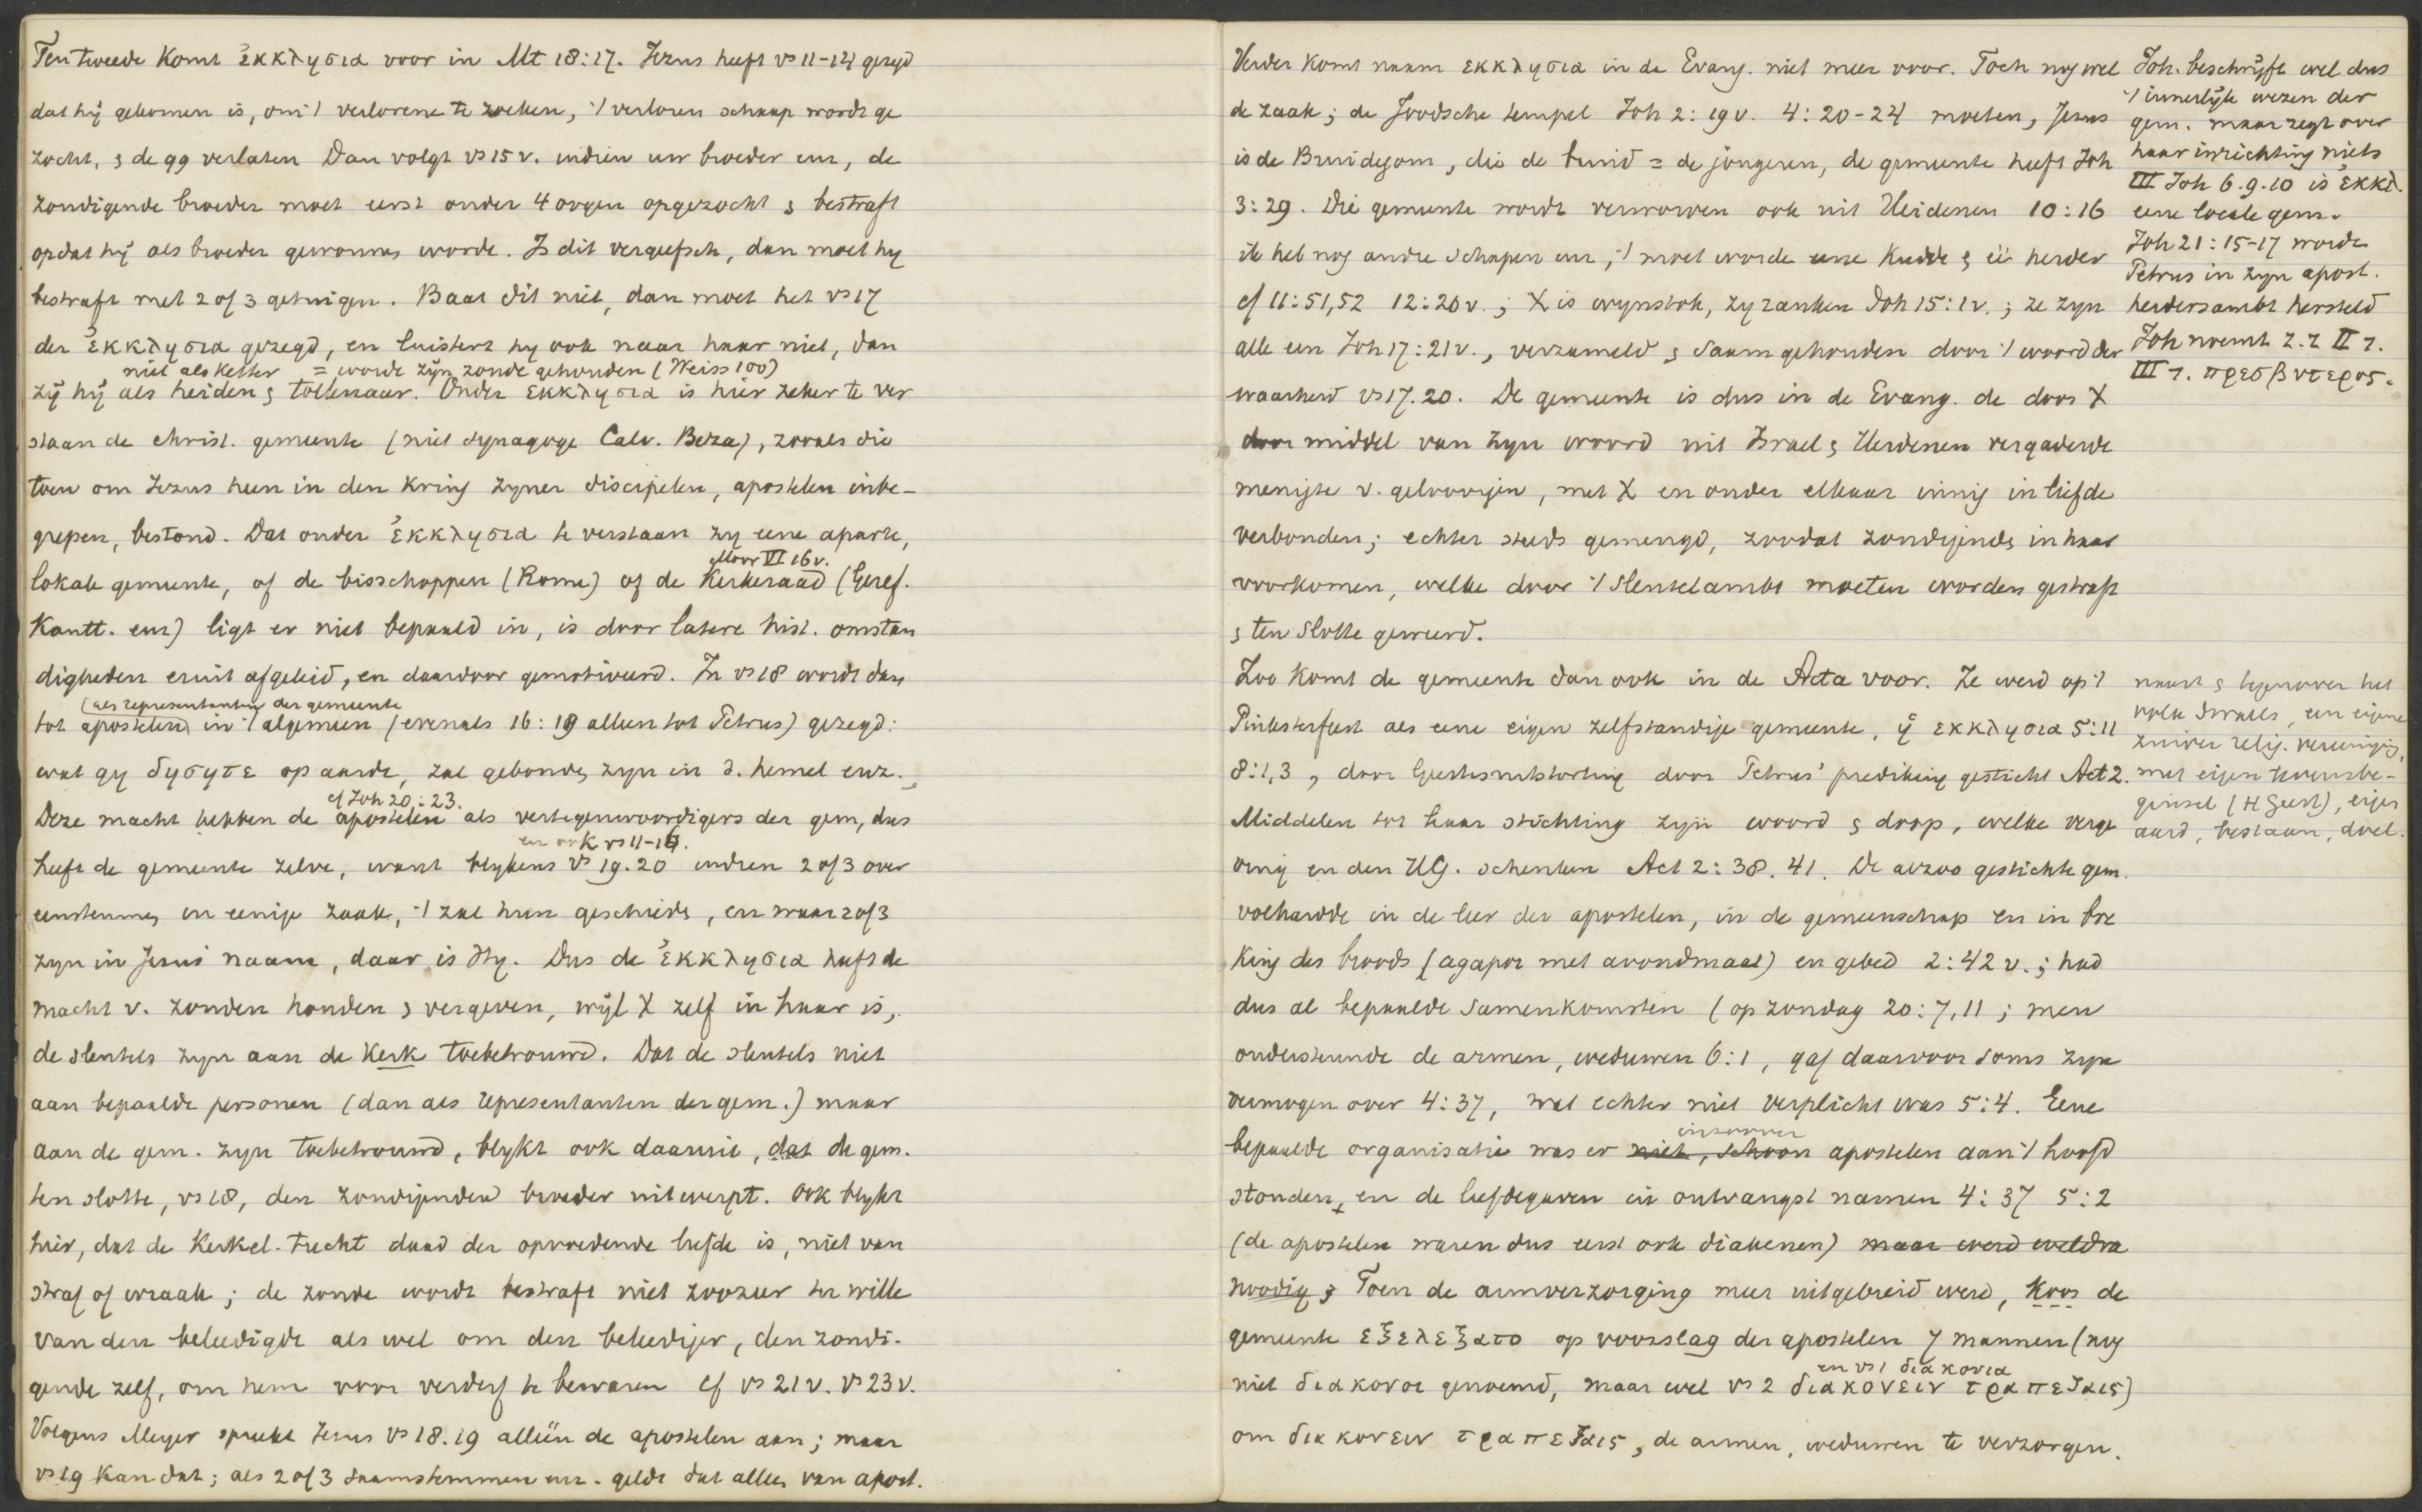 Ten tweede komt ἐκκλησια voor in Mt 18:17. Jezus heeft vs 11-14 gezegd
dat hij gekomen is, om 't verlorene te zoeken, 't verloren schaap wordt ge
zocht, & de 99 verlaten Dan volgt vs 15 v. indien uw broeder enz, de
zondigende broeder moet eerst onder 4 oogen opgezocht & bestraft
opdat hij als broeder gewonnen worde. Is dit vergeefsch, dan moet hy
bestraft met 2 of 3 getuigen. Baat dit niet, dan moet het vs 17
der ἐκκλησια gezegd, en luistert hy ook naar haar niet, dan
niet als ketter = worde zijn zonde gehouden (Weiss 100)
zij hij als heiden & tollenaar. Onder εκκλησια is hier zeker te ver
staan de christ. gemeente (niet synagoge Calv. Beza), zooals die
toen om Jezus heen in den kring zyner discipelen, apostelen inbe-
grepen, bestond. Dat onder ἐκκλησια te verstaan zy eene aparte,
Moor VI 16 v.
lokale gemeente, of de bisschoppen (Rome) of de Kerkeraad (Geref.
Kantt. enz) ligt er niet bepaald in, is door latere hist. omstan
digheden eruit afgeleid, en daardoor gemotiveerd. In vs 18 wordt dan
(als representanten der gemeente
tot apostelen in 't algemeen (evenals 16:19 alleen tot Petrus) gezegd:
wat gy δησητε op aarde, zal gebonden zyn in d. hemel enz.
cf Joh 20:23.
Deze macht hebben de apostelen als vertegenwoordigers der gem, dus
en ook vs 11-16.
heeft de gemeente zelve, want blykens vs 19.20 indien 2 of 3 over
eenstemmen in eenige zaak, 't zal hun geschieden, en waar 2 of 3
zyn in Jezus naam, daar is Hy. Dus de ἐκκλησια heeft de
macht v. zonden houden & vergeven, wijl X zelf in haar is,
de sleutels zyn aan de Kerk toebetrouwd. Dat de sleutels niet
aan bepaalde personen (dan als representanten der gem.) maar
aan de gem. zyn toebetrouwd, blykt ook daaruit, dat de gem.
ten slotte, vs 18, den zondigenden broeder uitwerpt. Ook blykt
hier, dat de Kerkel. tucht daad der opvoedende liefde is, niet van
straf of wraak; de zonde wordt bestraft niet zoozeer ter wille
van den beleedigde als wel om den beleediger, den zondi-
gende zelf, om hem voor verderf te bewaren cf vs 21 v. vs 23 v.
Volgens Meyer spreekt Jezus vs 18.19 alléén de apostelen aan; maar
vs 19 kan dat; als 2 of 3 saamstemmen enz. geldt dat alleen van apost.
Verder komt naam εκκλησια in de Evang. niet meer voor. Toch nog wel
de zaak; de Joodsche tempel Joh 2:19 v. 4:20-24 moeten, Jezus
is de Bruidegom, die de bruid = de jongeren, de gemeente heeft Joh
3:29. Die gemeente wordt verworven ook uit Heidenen 10:16
ik heb nog andre schapen enz, 't moet worde eene kudde & éé herder
cf 11:51,52 12:20 v.; X is wynstok, zy ranken Joh 15:1 v.; ze zyn
alle een Joh 17:21 v., verzameld & saamgehouden door 't woord der
waarheid vs 17.20. De gemeente is dus in de Evang. de door X
door middel van zyn woord uit Israel & Heidenen vergaderde
menigte v. geloovigen, met X en onder elkaar innig in liefde
verbonden; echter steeds gemengd, zoodat zondigende in haar
voorkomen, welke door 't sleutelambt moeten worden gestraft
& ten slotte geweerd.
Zoo komt de gemeente dan ook in de Acta voor. Ze werd op 't
Pinksterfeest als eene eigen zelfstandige gemeente, ἡ εκκλησια 5:11
8:1,3, door Geestesuitstorting door Petrus' prediking gesticht Act 2.
Middelen tot haar stichting zyn woord & doop, welke verge
ving en den HG. schenken Act 2:38.41. De alzoo gestichte gem.
volhardde in de leer der apostelen, in de gemeenschap en in bre
king des broods (agapae met avondmaal) en gebed 2:42 v.; had
dus al bepaalde samenkomsten (op zondag 20:7,11; men
ondersteunde de armen, weduwen 6:1, gaf daarvoor soms zyn
vermogen over 4:37, wat echter niet verplicht was 5:4. Eene
inzoover
bepaalde organisatie was er niet, schoon apostelen aan 't hoofd
stonden, en de liefdegaven in ontvangst namen 4:37 5:2
(de apostelen waren dus eerst ook diakenen) maar werd weldra
noodig & Toen de armverzorging meer uitgebreid werd, koos de
gemeente εξελεξατο op voorslag der apostelen 7 mannen (nog
en vs 1 διακονια
niet διακονοι genoemd, maar wel vs 2 διακονειν τραπεζαις)
om διακονειν τραπεζαις, de armen, weduwen te verzorgen.
Joh. beschrijft wel dus
't innerlijk wezen der
gem. maar zegt over
haar inrichting niets
III Joh 6.9.10 is ἐκκλ.
eene locale gem.
Joh 21:15-17 wordt
Petrus in zyn apost.
herdersambt hersteld
Joh noemt z. z II 1.
III 1. πρεσβυτερος.
naast & tegenover het
volk Israels, een eigene
zuiver relig. vereeniging,
met eigen levensbe-
ginsel (H Geest), eigen
aard, bestaan, doel.